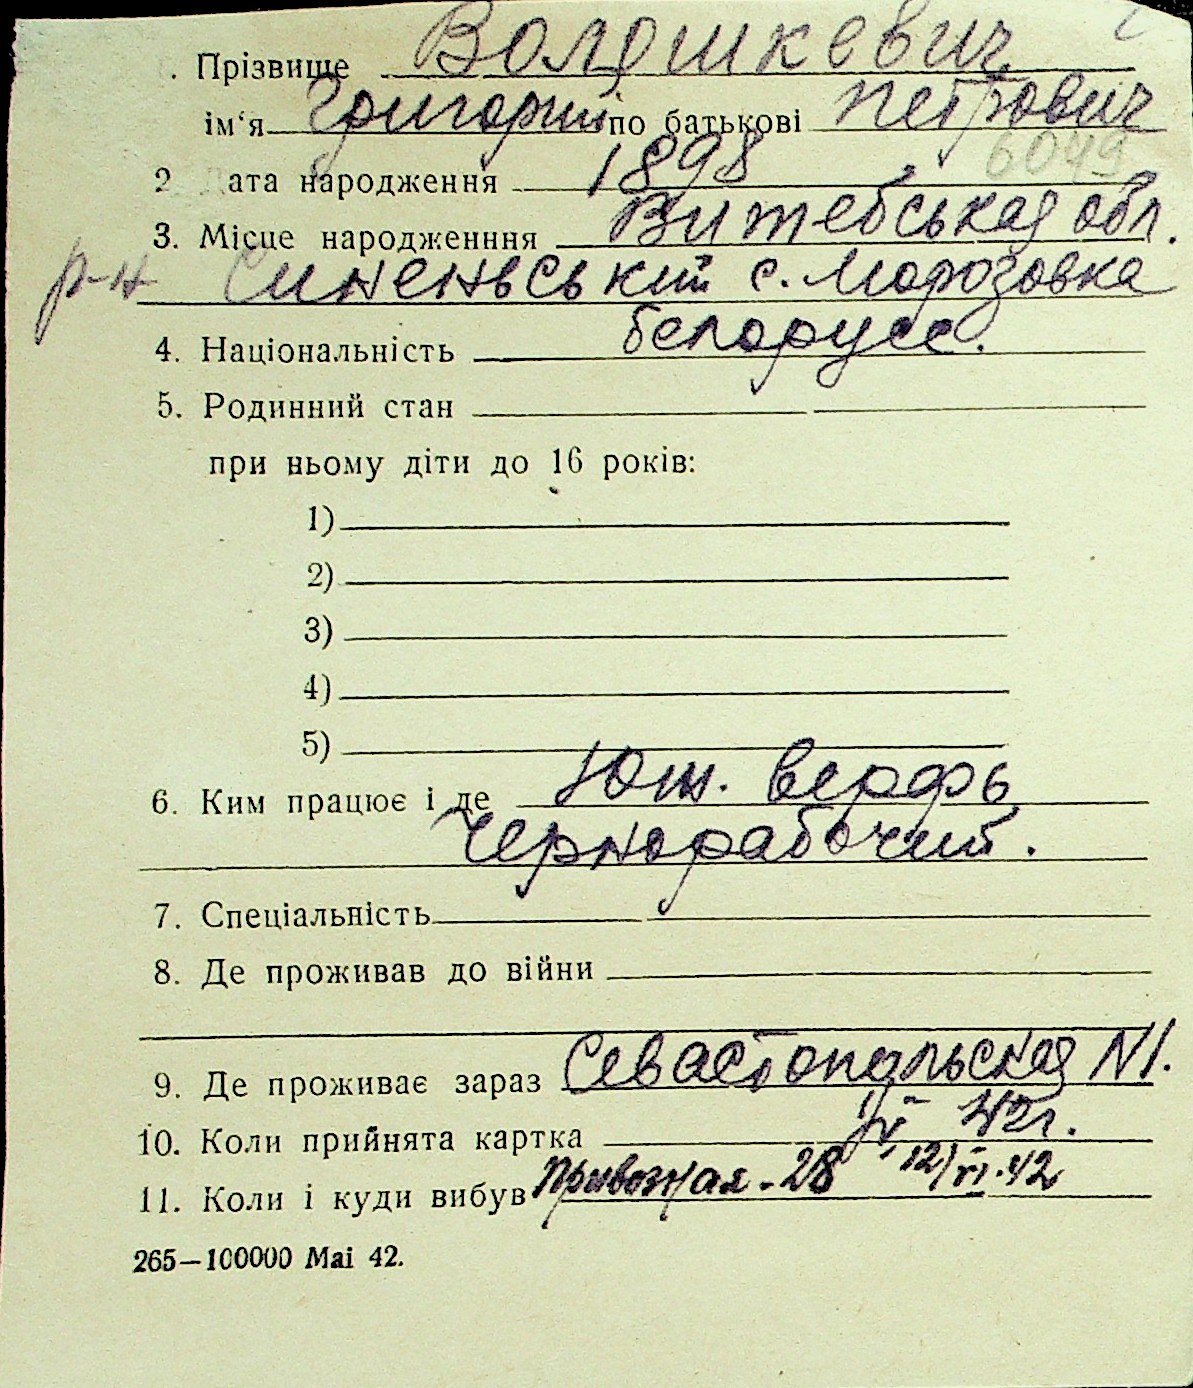 . Прізвище Волошкевич
ім‘я Григорий по батькові Петрович
6049
2 ата народження 1898
3. Місце народженння Витебськая обл.
р-н Синеньський с. Морозовка
4. Національність белорусс.
5. Родинний стан
при ньому діти до 16 років:
1)
2)
3)
4)
5)
6. Ким працює і де Юж. верфь
Чернорабочий.
7. Спеціальність
8. Де проживав до війни
9. Де проживає зараз Севастопальская N1.
10. Коли прийнята картка IV 42г.
11. Коли і куди вибув Привозная - 28 12/VI.42
265—100000 Mai 42.